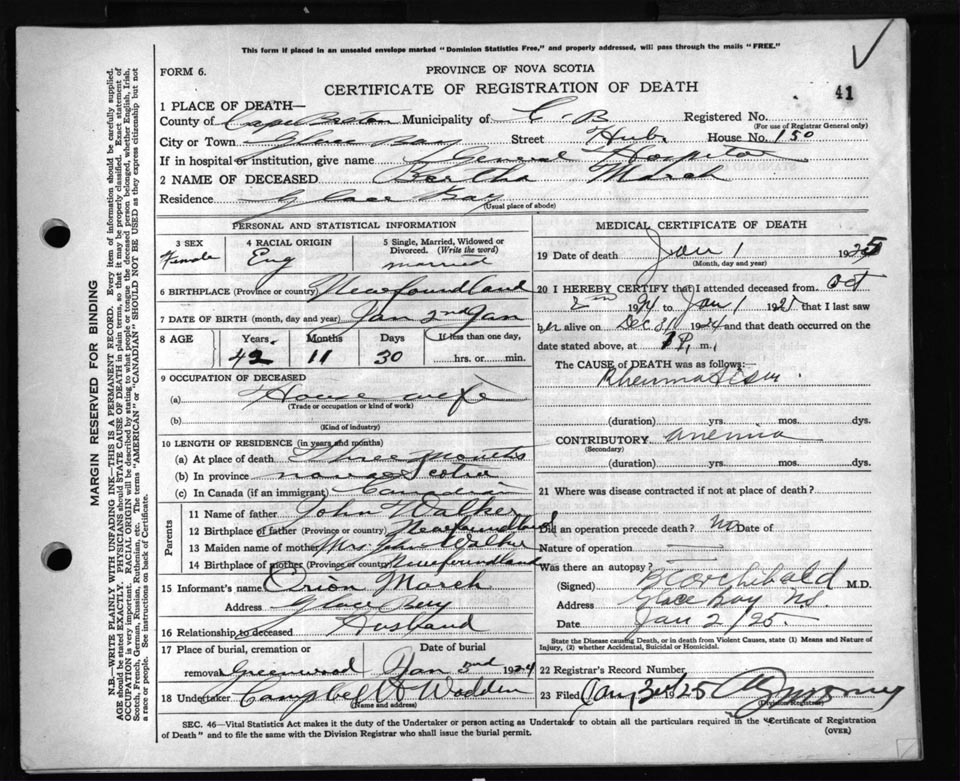 This form if placed in an unsealed envelope marked "Dominion Statistics Free," and properly addressed, will pass through the mails "FREE."
FORM 6.
PROVINCE OF NOVA SCOTIA
CERTIFICATE OF REGISTRATION OF DEATH
41
1 PLACE OF DEATH—
County of Cape Breton Municipality of C. B Registered No.
(For use of Registrar General only)
City or Town Glace Bay Street Hub House No. 150
If in hospital or institution, give name General Hospital
2 NAME OF DECEASED Bertha March
Residence Glace Bay
(Usual place of abode)
PERSONAL AND STATISTICAL INFORMATION
3 SEX Female
4 RACIAL ORIGIN Eng
5 Single, Married, Widowed or Divorced. (Write the word) married
6 BIRTHPLACE (Province or country) Newfoundland
7 DATE OF BIRTH (month, day and year) Jan 2nd Jan
8 AGE Years Months Days If less than one day,
42 11 30 hrs. or min.
9 OCCUPATION OF DECEASED
(a) House wife
(Trade or occupation or kind of work)
(b)
(Kind of industry)
10 LENGTH OF RESIDENCE (in years and months)
(a) At place of death Three months
(b) In province nova Scotia
(c) In Canada (if an immigrant) Canadian
Parents
11 Name of father John Walker
12 Birthplace of father (Province or country) Newfoundland
13 Maiden name of mother Mrs. John Walker
14 Birthplace of mother (Province or country) Newfoundland
15 Informant's name Orion March
Address Glace Bay
16 Relationship to deceased Husband
17 Place of burial, cremation or Date of burial
removal Greenwood Jan 3rd 1924
18 Undertaker Campbell & Wadden
(Name and address)
MEDICAL CERTIFICATE OF DEATH
19 Date of death Jan 1 1925
(Month, day and year)
20 I HEREBY CERTIFY that I attended deceased from Oct
2nd 1924 to Jan 1 1925 that I last saw
her alive on Dec 31 1924 and that death occurred on
date stated above, at P. m.
The CAUSE OF DEATH was as follows:
Rheumatism.
(duration) yrs. mos. dys.
CONTRIBUTORY anemia
(Secondary)
(duration) yrs. mos. dys.
21 Where was disease contracted if not at place of death?
Did an operation precede death? No Date of
Nature of operation —
Was there an autopsy?
(Signed) Archibald M.D.
Address Glace Bay NS
Date Jan 2/25.
State the Disease causing Death, or in death from Violent Causes, state (1) Means and Nature of
Injury, (2) whether Accidental, Suicidal or Homicidal.
22 Registrar's Record Number
23 Filed Jan, 3rd 25
(Division Registrar)
SEC. 46—Vital Statistics Act makes it the duty of the Undertaker or person acting as Undertaker to obtain all the particulars required in the "Certificate of Registration
of Death" and to file the same with the Division Registrar who shall issue the burial permit. (OVER)
MARGIN RESERVED FOR BINDING
N.B.—WRITE PLAINLY WITH UNFADING INK—THIS IS A PERMANENT RECORD. Every item of information should be carefully supplied.
AGE should be stated EXACTLY. PHYSICIANS should STATE CAUSE OF DEATH in plain terms, so that it may be properly classified. Exact statement of
OCCUPATION is very important. RACIAL ORIGIN will be described by stating to what people or tongue the deceased person belonged, whether English, Irish,
Scotch, French, German, Russian, Ruthenian, etc. The terms "AMERICAN" or "CANADIAN" SHOULD NOT BE USED as they express citizenship but not
a race or people. See instructions on back of Certificate.